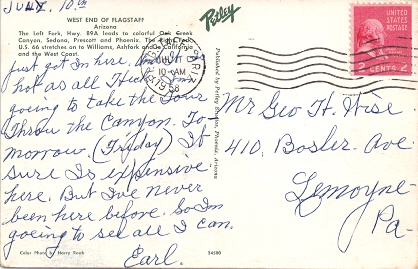 July. 10th
WEST END OF FLAGSTAFF
Arizona
The Left Fork, Hwy. 89A leads to colorful Oak Creek
Canyon, Sedona, Prescott and Phoenix. The Right Fork,
U.S. 66 stretches on to Williams, Ashfork and to California
and the West Coast.
Petley
just got In here. And It's
hot as all Heck. I'm
going to take the Tour
Throu the Canyon. To
morrow. (Friday) It
sure Is expensive
here. But I've never
been here before. So Im
goeing to see all I can.
Earl.
Color Photo by Harry Rauh
Published by Petley Studios, Phoenix, Arizona
54580
ARIZ.
JUL 11
10-AM
1958
UNITED STATES POSTAGE
2 CENTS 2
Mr Geo H. Wise
410, Bosler Ave
Lemoyne
Pa-